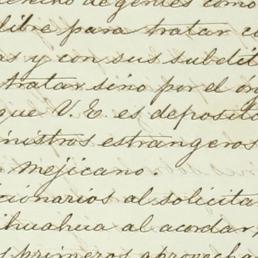 de gentes como
libre para tratar co
as y con sus subdit
tratar sino por el ór
que V. E. es deposita
inistros estrangeros
mejicano.
cionarios al solicita
ihuahua al acordar,
s primeros aprovecha